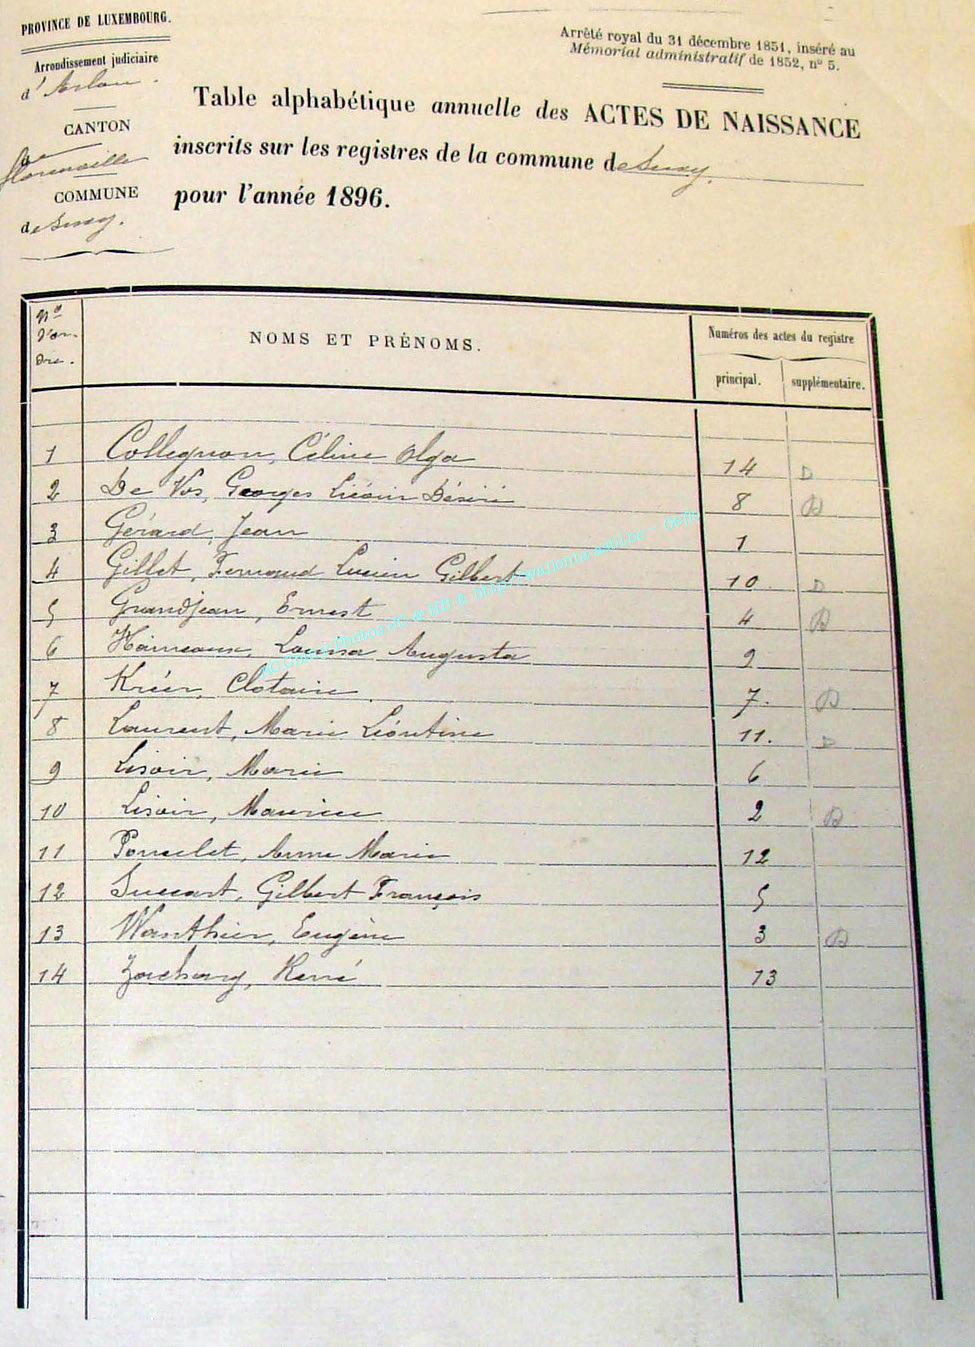 PROVINCE DE LUXEMBOURG.
Arrondissement judiciaire
d'Arlon.
CANTON
de
Florenville
COMMUNE
de Suxy.
Arrêté royal du 31 décembre 1851, inséré au
Mémorial administratif de 1852, nº 5.
Table alphabétique annuelle des ACTES DE NAISSANCE
inscrits sur les registres de la commune de Suxy.
pour l'année 1896.
Nº d'or-dre. NOMS ET PRÉNOMS. Numéros des actes du registre
principal. supplémentaire.
1 Collignon, Céline Olga 14 D
2 De Vos, Georges Désiré 8 D
3 Gérard, Jean 1
4 Gillet, Fernand Lucien Gilbert 10 D
5 Grandjean, Ernest 4 D
6 Louisa Augusta 9
7 Clotaire 7. D
8 Laurent, Marie Léontine 11. D
9 Lisoir, Marie 6
10 Lisoir, Maurice 2 D
11 Poncelet, Anne Marie 12
12 Gilbert François 5
13 Wauthier, Eugène 3 D
14 Zachary, René 13